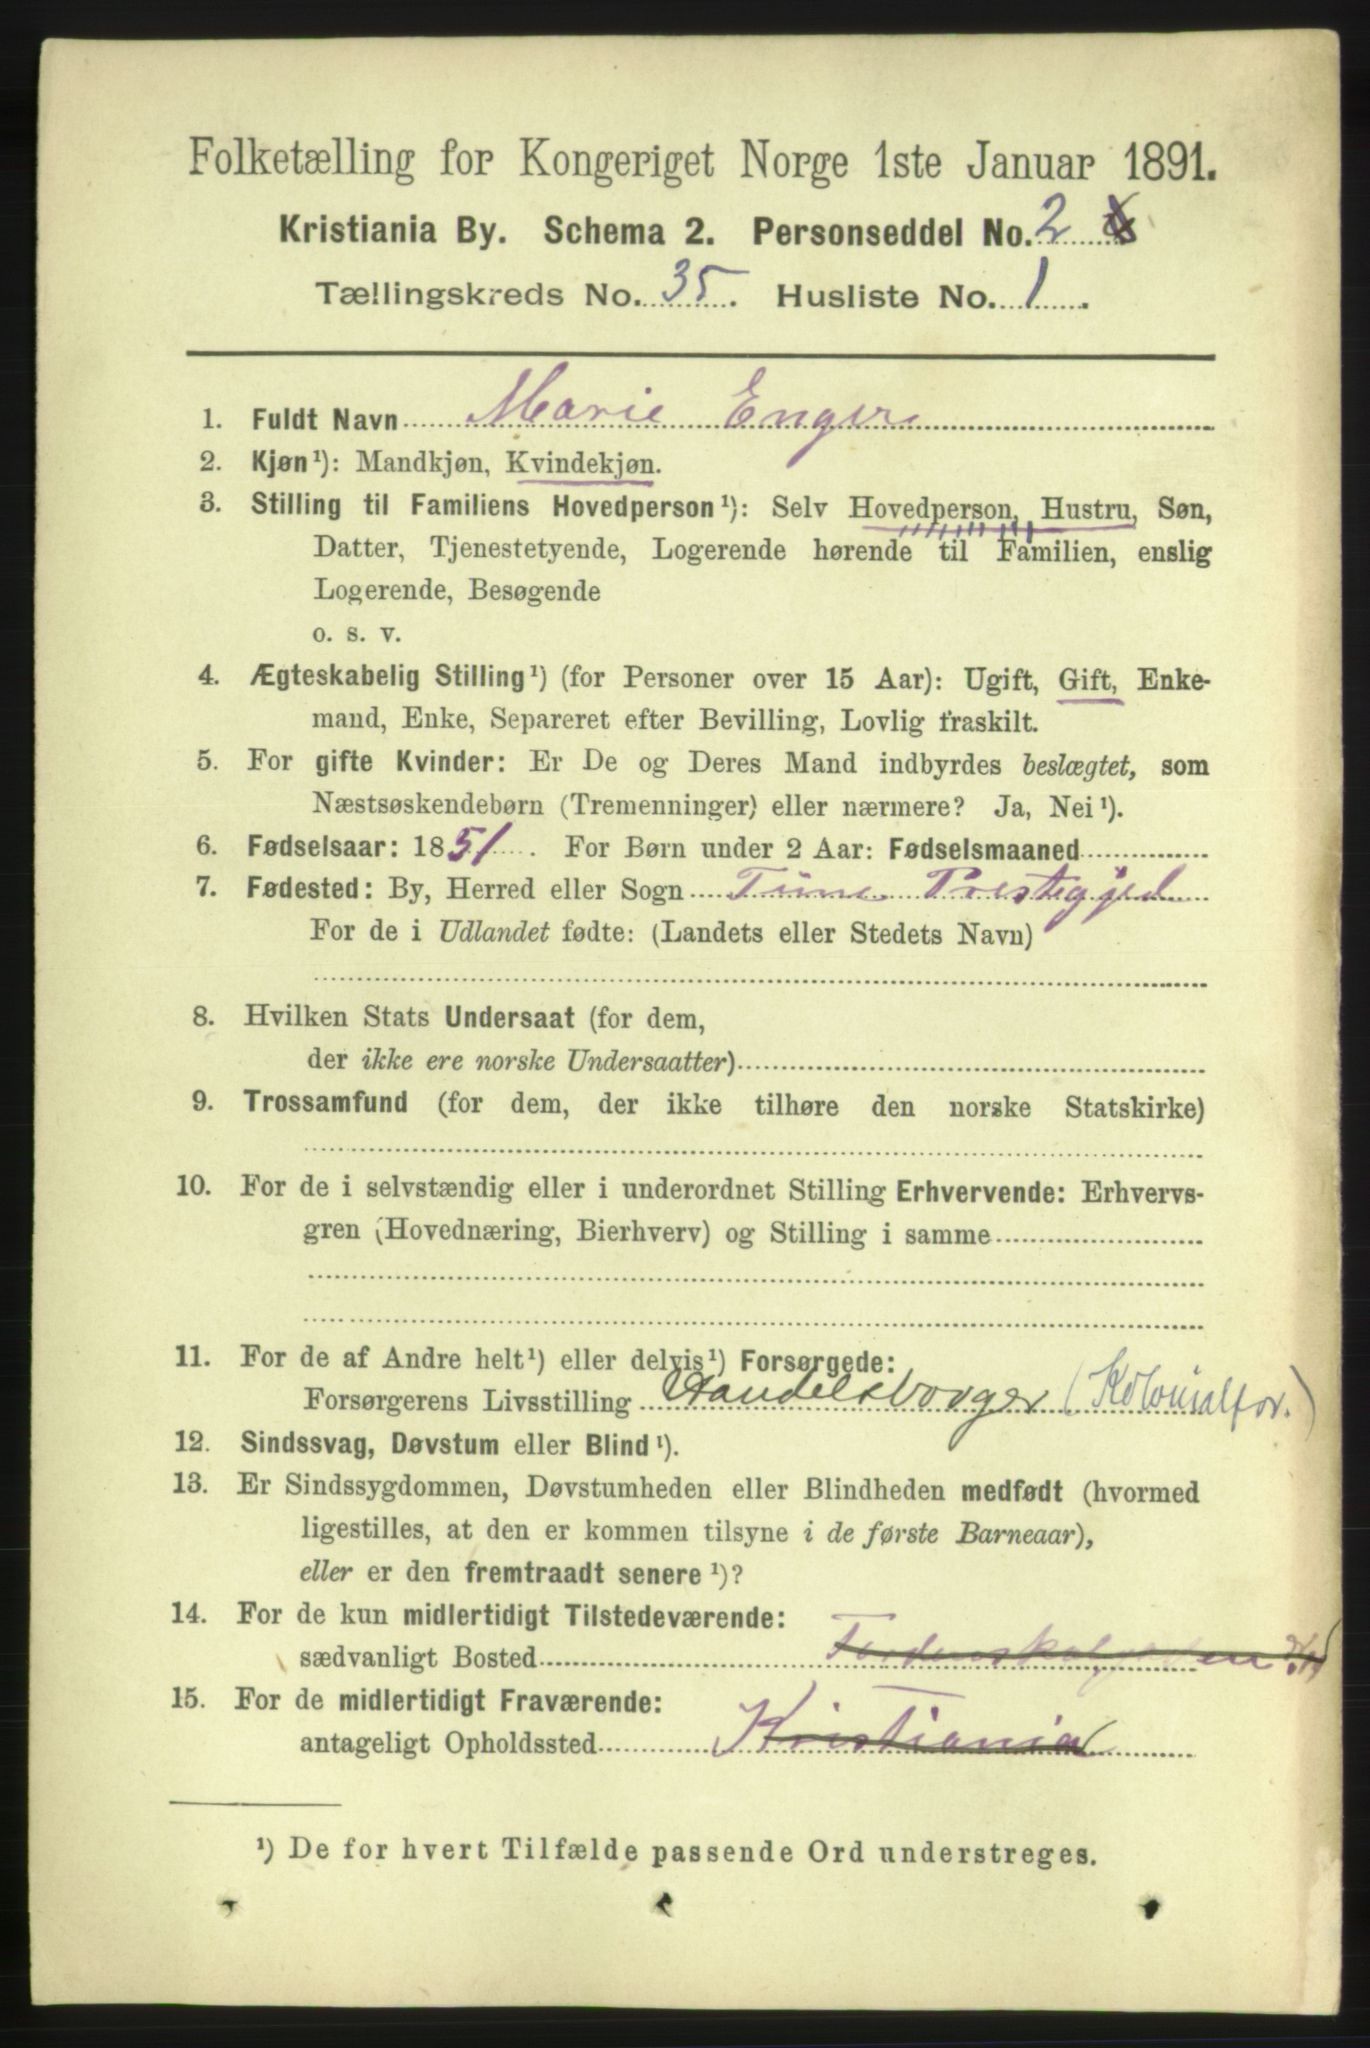 Folketælling for Kongeriget Norge 1ste Januar 1891.
Kristiania By. Schema 2. Personseddel No. 2
Tællingskreds No. 35. Husliste No. 1.
1. Fuldt Navn Marie Enger
2. Kjøn¹): Mandkjøn, Kvindekjøn.
3. Stilling til Familiens Hovedperson¹): Selv Hovedperson, Hustru, Søn,
Datter, Tjenestetyende, Logerende hørende til Familien, enslig
Logerende, Besøgende
o. s. v.
4. Ægteskabelig Stilling¹) (for Personer over 15 Aar): Ugift, Gift, Enke-
mand, Enke, Separeret efter Bevilling, Lovlig fraskilt.
5. For gifte Kvinder: Er De og Deres Mand indbyrdes beslægtet, som
Næstsøskendebørn (Tremenninger) eller nærmere? Ja, Nei¹).
6. Fødselsaar: 1851. For Børn under 2 Aar: Fødselsmaaned
7. Fødested: By, Herred eller Sogn Tune Prestegjed
For de i Udlandet fødte: (Landets eller Stedets Navn)
8. Hvilken Stats Undersaat (for dem,
der ikke ere norske Undersaatter)
9. Trossamfund (for dem, der ikke tilhøre den norske Statskirke)
10. For de i selvstændig eller i underordnet Stilling Erhvervende: Erhvervs-
gren (Hovednæring, Bierhverv) og Stilling i samme
11. For de af Andre helt¹) eller delvis¹) Forsørgede:
Forsørgerens Livsstilling Handelsborger (Kolonialfor.)
12. Sindssvag, Døvstum eller Blind¹).
13. Er Sindssygdommen, Døvstumheden eller Blindheden medfødt (hvormed
ligestilles, at den er kommen tilsyne i de første Barneaar),
eller er den fremtraadt senere¹)?
14. For de kun midlertidigt Tilstedeværende:
sædvanligt Bosted
15. For de midlertidigt Fraværende:
antageligt Opholdssted Kristiania
¹) De for hvert Tilfælde passende Ord understreges.